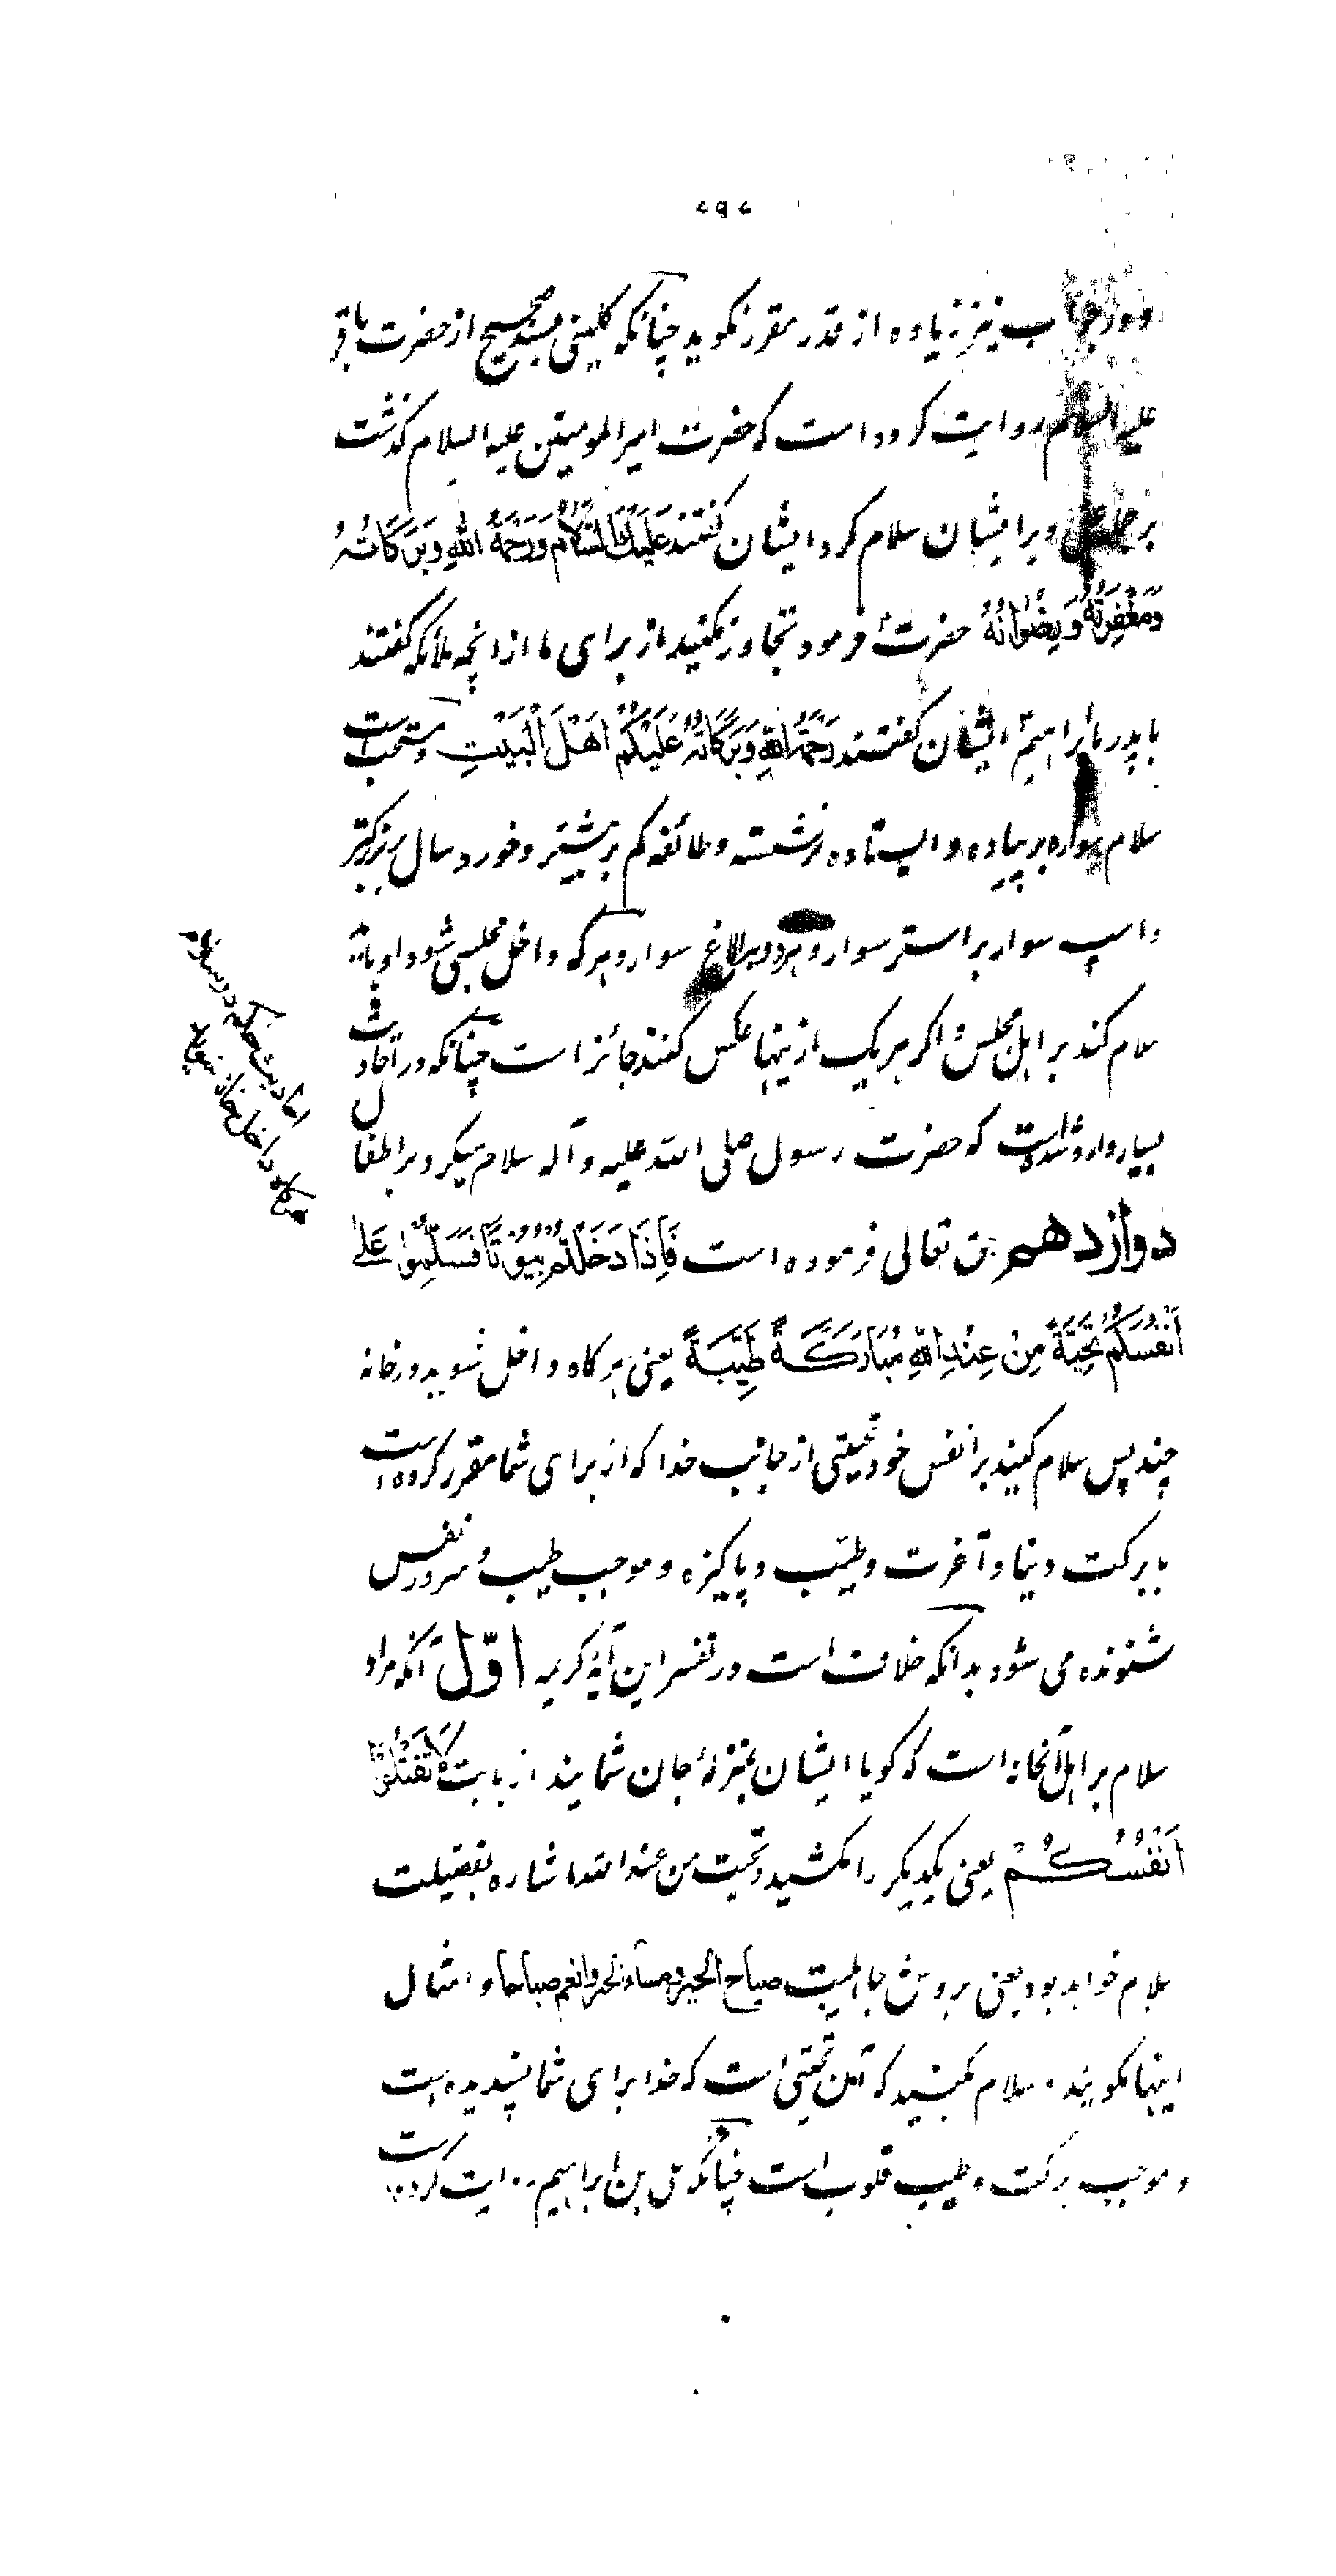 و در جواب نیز زیاده از قدر مقرر نکوید چنانکه کلینی بسند صحیح از حضرت باقر
علیه السلام روایت کرده است که حضرت امیر المومنین علیه السلام گذشت
بر جماعتی و بر ایشان سلام کرد ایشان گفتند عَلَیْكَ السَّلَامُ وَرَحْمَةُ اللهِ وَبَرَكَاتُهُ
وَمَغْفِرَتُهُ وَرِضْوَانُهُ حضرت فرمود تجاوز مکنید از برای ما از انچه ملائکه گفتند
با پدر ما ابراهیم ایشان گفتند رَحْمَةُ اللهِ وَبَرَكَاتُهُ عَلَيْكُمْ اَهْلَ الْبَيْتِ و مستحب است
سلام سواره بر پیاده و ایستاده بر نشسته و طائفه کم بر بیشتر و خورد سال بر بزرکتر
و اسپ سوار بر استر سوار و هر دو بر الاغ سوار و هر که داخل مجلسی شود او باید
سلام کند بر اهل مجلس و اکر هر یک ازینها عکس کنند جائز است چنانکه در احادیث
بسیار وارد شده است که حضرت رسول صلی الله علیه و آله سلام میکرد بر اطفال
دوازدهم حق تعالی فرموده است فَاِذَا دَخَلْتُمْ بُيُوْتًا فَسَلِّمُوْا عَلٰی
اَنْفُسِكُمْ تَحِيَّةً مِنْ عِنْدِ اللهِ مُبَارَكَةً طَيِّبَةً یعنی هرکاه داخل شوید در خانه
چند پس سلام کنید بر انفس خود تحیتی از جانب خدا که از برای شما مقرر کرده است
با برکت دنیا و آخرت و طیّب و پاکیزه و موجب طیب و سرور نفس
شنونده می شود بدانکه خلاف است در تفسر این آیۀ کریمه اوّل آنکه مراد
سلام بر اهل آنخانه است که کویا ایشان بمنزلۀ جان شمایند از بابت لَا تَقْتُلُوْا
اَنْفُسَكُمْ یعنی یکدیکر را مکشید و تحیت من عند الله اشاره بفضیلت
سلام خواهد بود یعنی بروش جاهلیت صباح الخیر و مساء الخیر و انعم صباحا و امثال
اینها مکویند سلام بکنید که این تحیتی است که خدا برای شما پسندیده است
و موجب برکت و طیب قلوب است چنانکه علی بن ابراهیم روایت کرده است